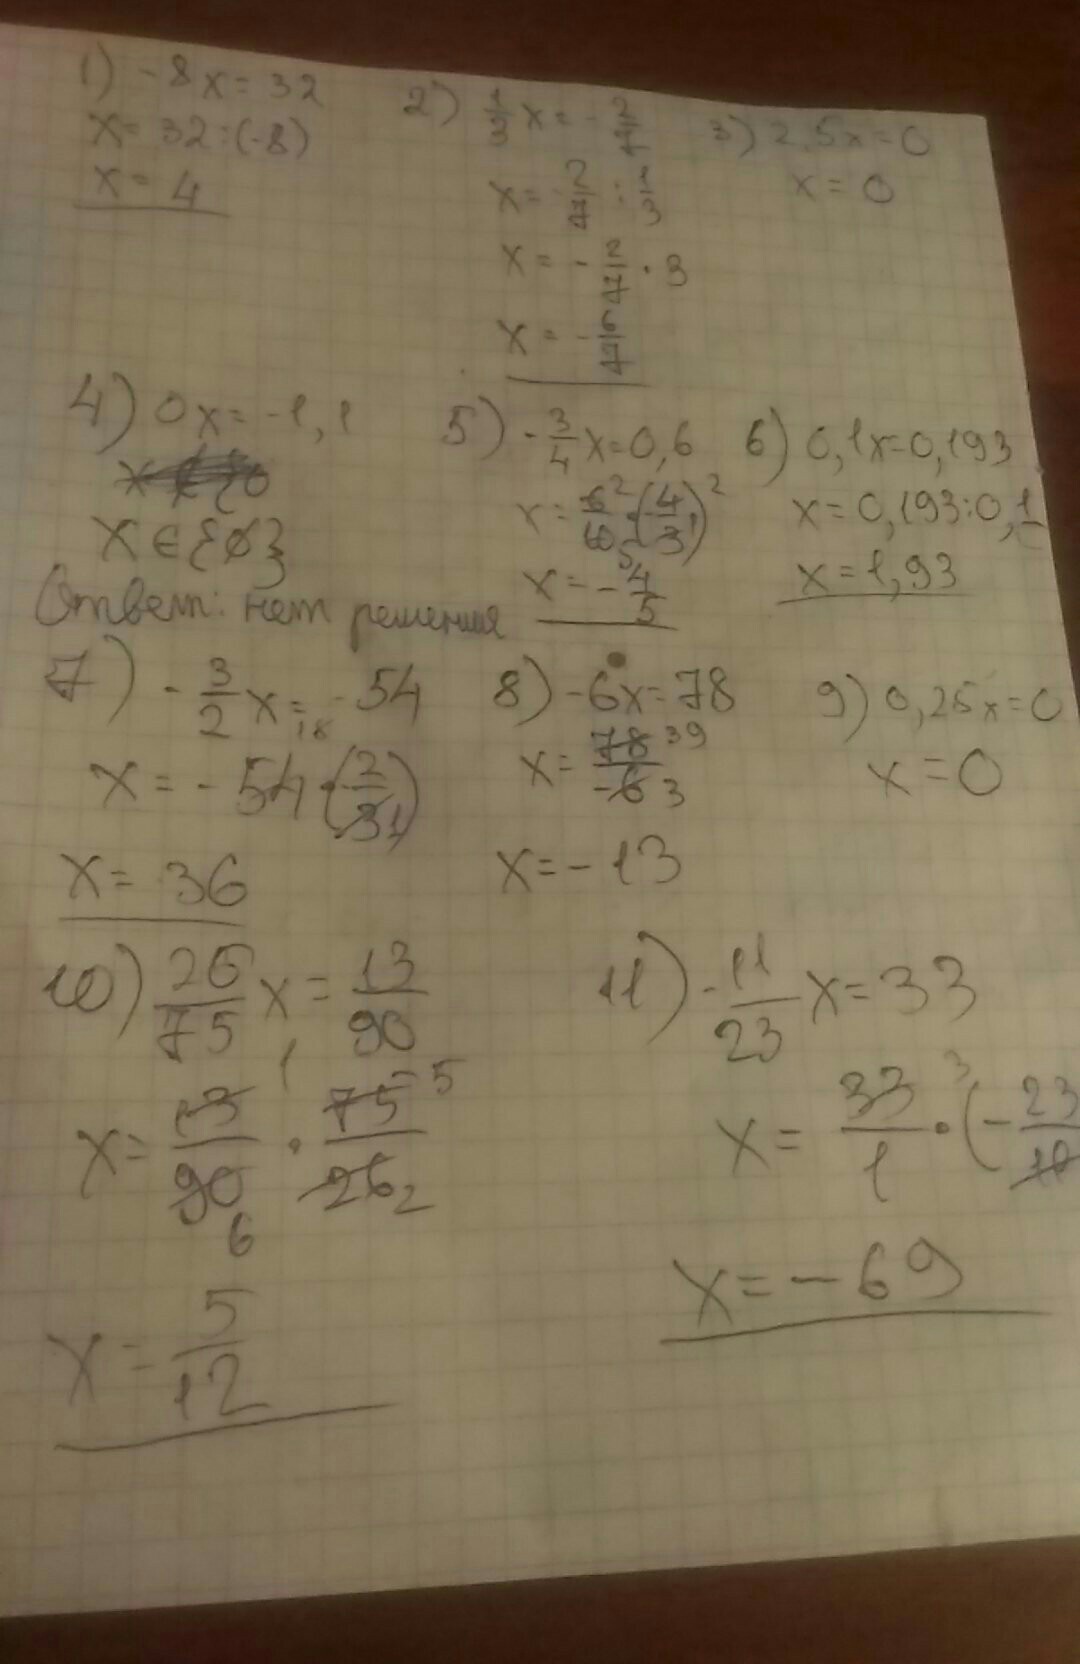 1) -8x=32
x=32:(-8)
x=4
2) 1/3 x = -2/7
x = -2/7 : 1/3
x = -2/7 · 3
x = -6/7
3) 2,5x=0
x=0
4) 0x=-1,1
x∈{∅}
Ответ: нет решения
5) -3/4 x=0,6
x = 6/10 · (-4/3)
x=-4/5
6) 0,1x=0,193
x=0,193:0,1
x=1,93
7) -3/2 x=-54
x=-54·(-2/3)
x=36
8) -6x=78
x=78/-6
x=-13
9) 0,25x=0
x=0
10) 26/75 x=13/90
x=13/90 · 75/26
x=5/12
11) -11/23 x=33
x=33/1 · (-23/11
x=-69